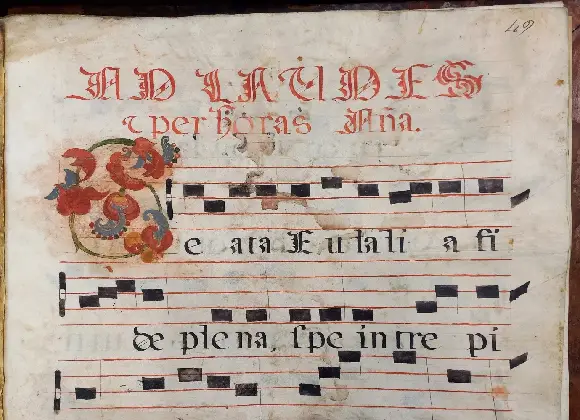 49
AD LAUDES
⁊ per horas Aña.
Beata Eulali a fi
de plena, spe intre pi